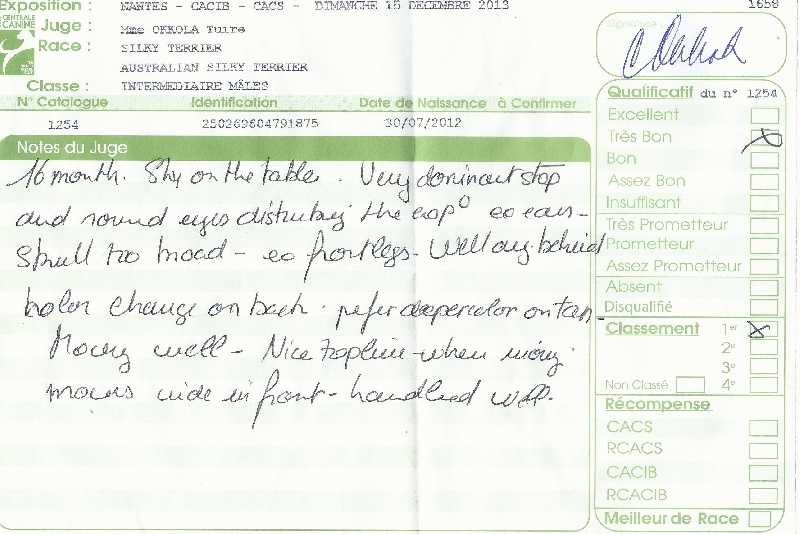 Exposition : NANTES - CACIB - CACS - DIMANCHE 15 DECEMBRE 2013
1658
CENTRALE CANINE
Juge : Mme OKKOLA Tuire
Race : SILKY TERRIER
AUSTRALIAN SILKY TERRIER
Classe : INTERMEDIAIRE MÂLES
N° Catalogue Identification Date de Naissance à Confirmer
1254 250269604791875 30/07/2012
Notes du Juge
16 month. Shy on the table. Very dominant stop
and round eyes disturbing the exp° ex ears -
Skull too broad - ex front legs. Well ang behind
kolor change on back. prefer deeper color on tan -
Moving well - Nice topline when moving
moves wide in front - handled well.
Signature :
Qualificatif du n° 1254
Excellent
Très Bon
Bon
Assez Bon
Insuffisant
Très Prometteur
Prometteur
Assez Prometteur
Absent
Disqualifié
Classement 1er
2e
3e
Non Classé 4e
Récompense
CACS
RCACS
CACIB
RCACIB
Meilleur de Race